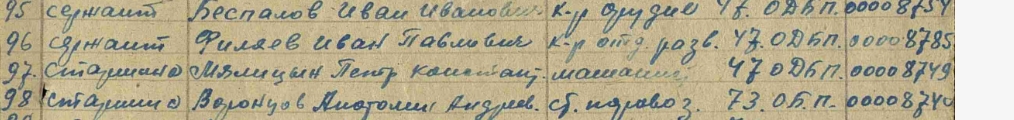 95 сержант Беспалов Иван Иванович к-р орудие 47. ОДБП. 00008754
96 сержант Филяев Иван Павлович к-р отд. разв. 47. ОДБП. 00008785
97. старшина Мялицын Петр констант. машинис 47 ОДБП. 00008749
98 старшина Воронцов Анатолий Андреев. ст. паровоз. 73. ОБ.П. 00008740